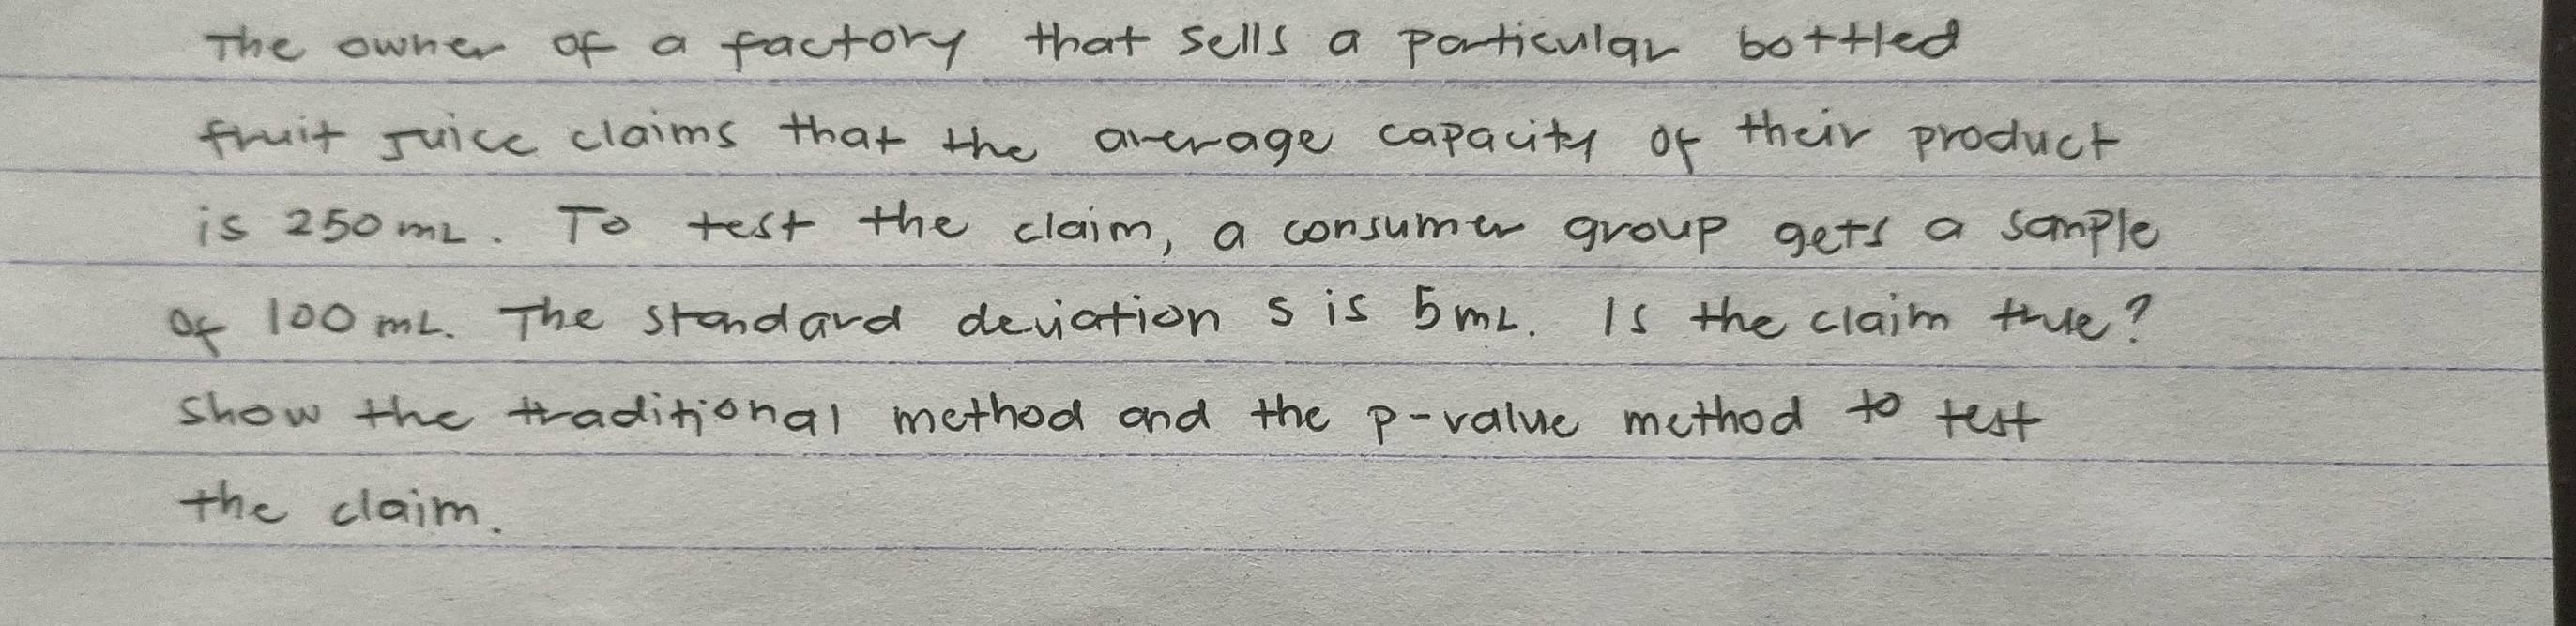 The owner of a factory that sells a particular bottled
fruit juice claims that the average capacity of their product
is 250 mL. To test the claim, a consumer group gets a sample
of 100 mL. The standard deviation s is 5 mL. Is the claim true?
show the traditional method and the p-value method to test
the claim.